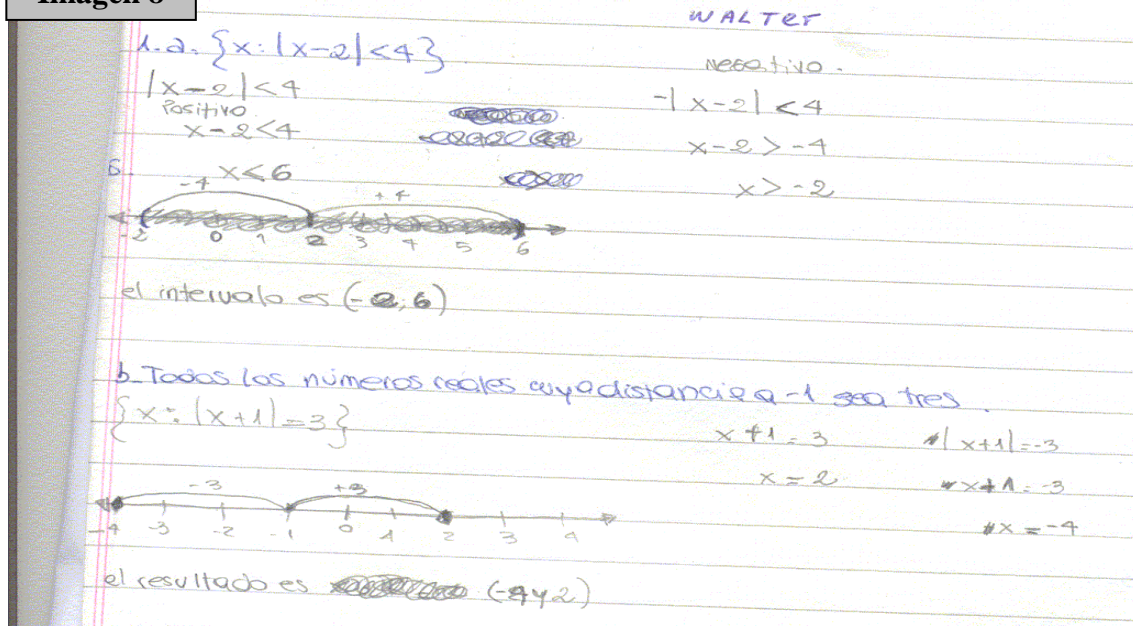 Imagen 8
WALTER
1.a. {x: |x-2|<4}
negativo.
|x-2|<4
-|x-2| <4
Positivo
x-2<4
x-2 > -4
x<6
x> -2
-4
+4
-2 0 1 2 3 4 5 6
el intervalo es (-2;6)
b- Todos los números reales cuya distancia a -1 sea tres.
{x: |x+1|=3}
x+1=3
|x+1|=-3
x=2
x+1=-3
x=-4
-3
+3
-4 -3 -2 -1 0 1 2 3 4
el resultado es (-4y2)